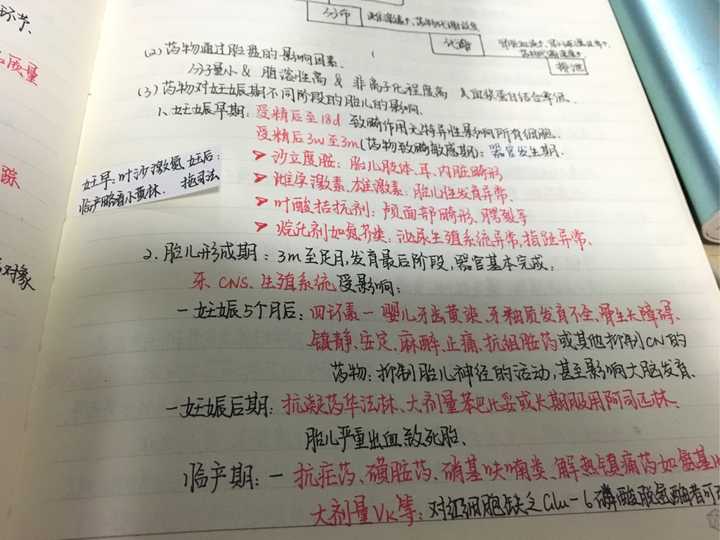 环节、
质量
分布
代谢
排泄
(2) 药物通过胎盘的影响因素.
分子量小 & 脂溶性高 & 非离子化程度高 & 与血浆蛋白结合率低.
(3) 药物对妊娠期不同阶段的胎儿的影响.
1、妊娠早期: 受精后至18d 致畸作用无特异性影响所有细胞.
受精后3w至3m(药物致畸敏感期): 器官发生期.
➤ 沙立度胺: 胎儿肢体、耳、内脏畸形
➤ 雌孕激素、雄激素: 胎儿性发育异常.
➤ 叶酸拮抗剂: 颅面部畸形、腭裂等
➤ 烷化剂如氮芥类: 泌尿生殖系统异常、指趾异常、
妊早、叶沙激氮 妊后:
踪
2. 胎儿形成期: 3m至足月,发育最后阶段,器官基本完成,
对象
牙、CNS、生殖系统受影响:
一妊娠5个月后: 四环素一婴儿牙齿黄染,牙釉质发育不全,骨生长障碍.
镇静、安定、麻醉、止痛、抗组胺药或其他抑制CN的
药物: 抑制胎儿神经的活动,甚至影响大脑发育.
一妊娠后期: 抗凝药华法林、大剂量苯巴比妥或长期服用阿司匹林.
胎儿严重出血致死胎.
临产期: 一 抗疟药、磺胺药、硝基呋喃类、解热镇痛药如氨基
大剂量VK等: 对红细胞缺乏Glu-6磷酸脱氢酶者可